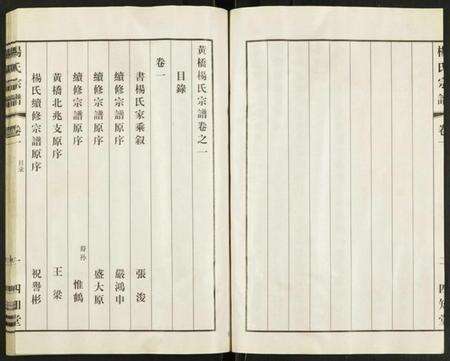 楊氏宗譜
卷一
二
四知堂
黃橋楊氏宗譜卷之一
目錄
卷一
書楊氏家乘叙 張浚
續修宗譜原序 嚴鴻申
續修宗譜原序 盛大原
續修宗譜原序 裔孫 惟鶴
黃橋北兆支原序 王梁
楊氏續修宗譜原序 祝譽彬
楊氏宗譜
卷一
目錄
一
四知堂